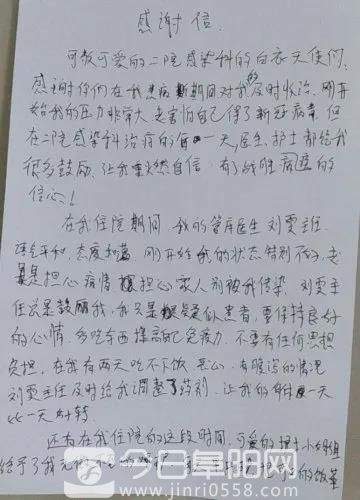 感谢信
可敬可爱的二院感染科的白衣天使们,
感谢你们在我患病期间对我的及时收治。刚开
始我的压力非常大 老害怕自己得了新冠病毒,但
在二院感染科治病的每一天,医生、护士都给我
很多鼓励,让我重燃自信,有了战胜病魔的
信心!
在我住院期间,我的管床医生刘雯主任
语气平和,态度和蔼,刚开始我的状态特别不好,老
是担心病情 担心家人别被我传染,刘雯主
任总是鼓励我,我只是疑似患者,要保持良好
的心情,多吃东西提高自己免疫力,不要有任何思想
负担,在我有两天吃不下饭,恶心,有腹泻的情况
刘雯主任及时给我调整了药剂,让我的身体一天
比一天好转
还有在我住院的这段时间,可爱的护士小姐姐
给予了我无微不至的
今日阜阳网
www.jinri0558.com